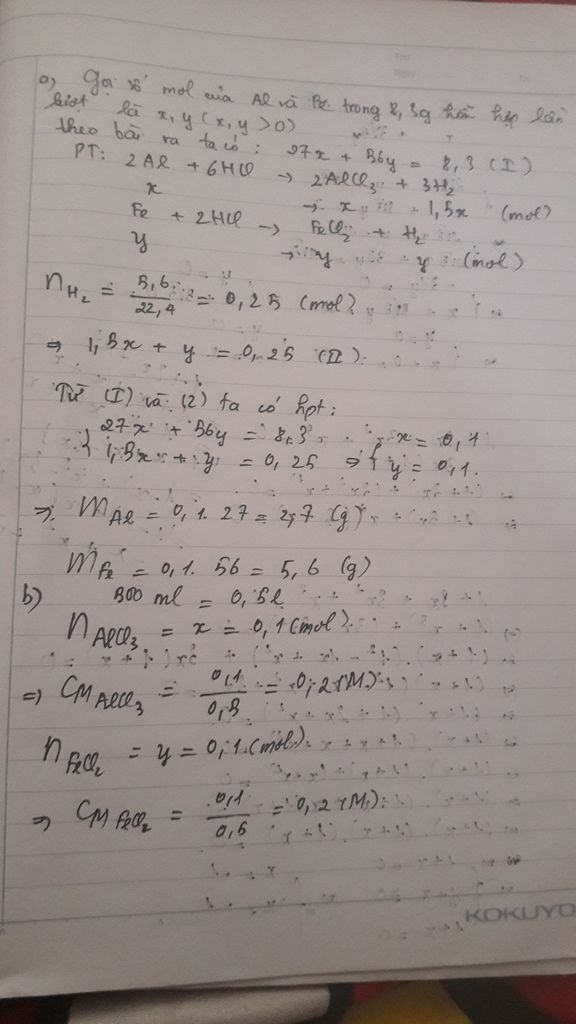 a) Gọi số mol của Al và Fe trong 8,3g hỗn hợp lần
lượt là x, y (x, y > 0)
theo bài ra ta có: 27x + 56y = 8,3 (I)
PT: 2Al + 6HCl → 2AlCl₃ + 3H₂
x → x 1,5x (mol)
Fe + 2HCl → FeCl₂ + H₂
y → y y (mol)
nH₂ = 5,6/22,4 = 0,25 (mol)
⇒ 1,5x + y = 0,25 (II)
Từ (I) và (2) ta có hpt:
{ 27x + 56y = 8,3 { x = 0,1
1,5x + y = 0,25 ⇒ y = 0,1.
⇒ mAl = 0,1. 27 = 2,7 (g)
mFe = 0,1. 56 = 5,6 (g)
b) 500 ml = 0,5l
nAlCl₃ = x = 0,1 (mol)
⇒ CM AlCl₃ = 0,1/0,5 = 0,2 (M)
nFeCl₂ = y = 0,1 (mol)
⇒ CM FeCl₂ = 0,1/0,5 = 0,2 (M)
KOKUYO